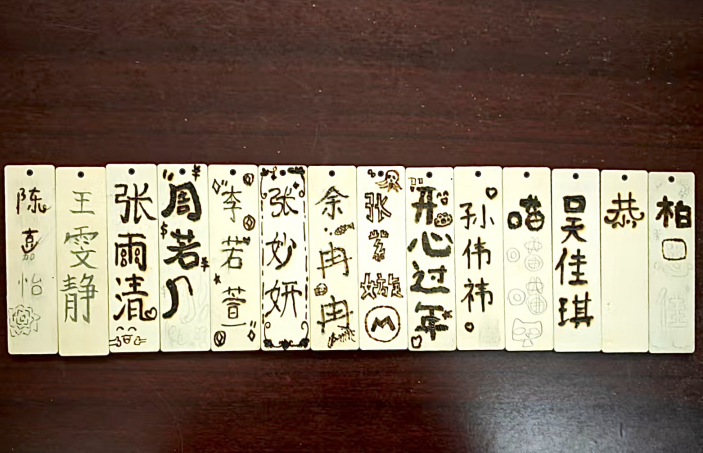 陈嘉怡
王雯静
张雨清
周若
李若萱
张妙妍
余冉冉
张
M
开心过年
孙伟祎
喵
吴佳琪
恭
柏